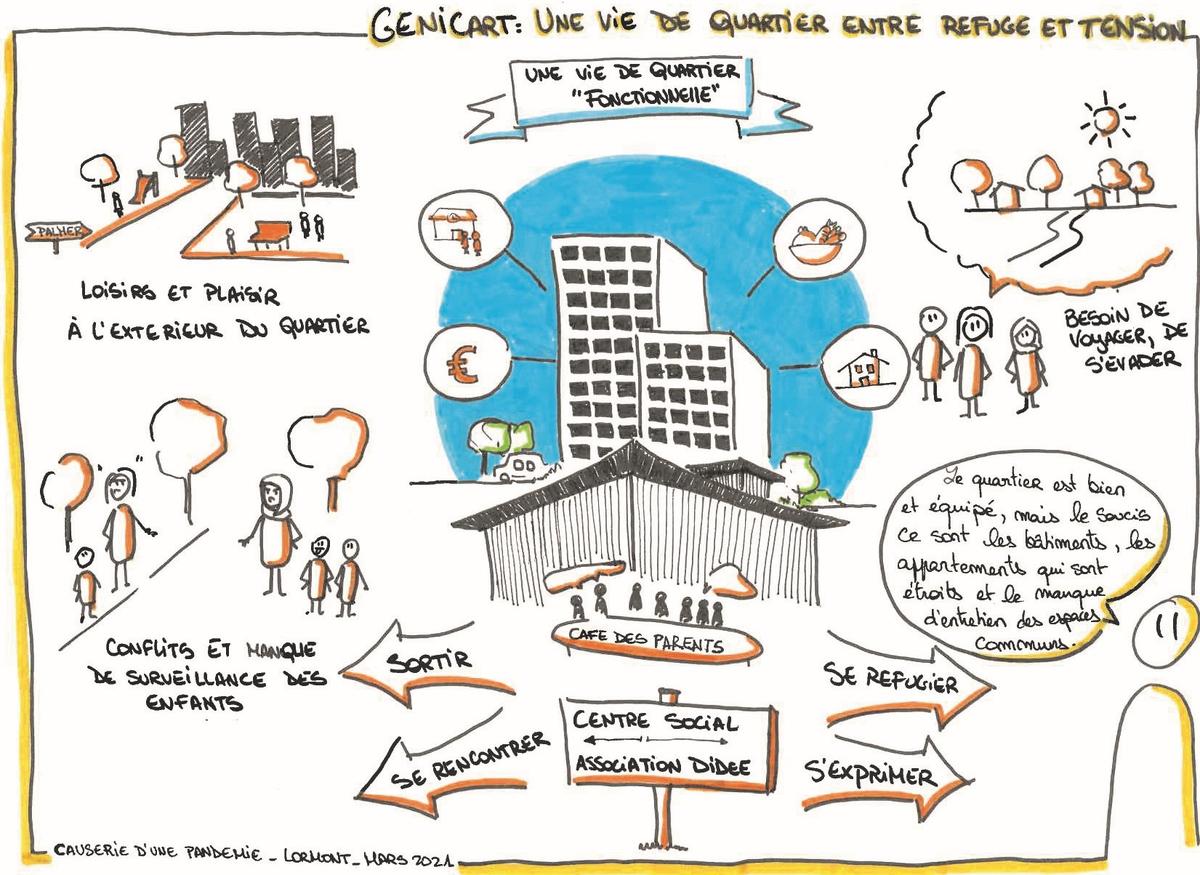 GENICART: UNE VIE DE QUARTIER ENTRE REFUGE ET TENSION
UNE VIE DE QUARTIER
"FONCTIONNELLE"
PALMER
LOISIRS ET PLAISIR
À L'EXTERIEUR DU QUARTIER
€
BESOIN DE
VOYAGER, DE
S'ÉVADER
Le quartier est bien
et équipé, mais le soucis
ce sont les bâtiments, les
appartements qui sont
étroits et le manque
d'entretien des espaces
communs.
CONFLITS ET MANQUE
DE SURVEILLANCE DES
ENFANTS
CAFE DES PARENTS
SORTIR
SE REFUGIER
SE RENCONTRER
CENTRE SOCIAL
ASSOCIATION DIDEE
S'EXPRIMER
CAUSERIE D'UNE PANDEMIE - LORMONT - MARS 2021